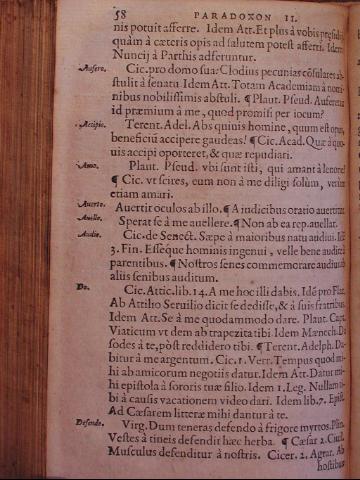 58 PARADOXON II.
nis potuit afferre. Idem Att. Et plus à vobis præsidij
quàm à cæteris opis ad salutem potest afferti. Idem
Nuncij à Parthis adferuntur.
Aufero. Cic. pro domo sua: Clodius pecunias cõsulares ab
stulit à senatu Idem Att. Totam Academiam à nomi
nibus nobilissimis abstuli. ¶ Plaut. Pseud. Auferetur
id præmium à me, quod promisi per iocum?
Accipio. Terent. Adel. Abs quiuis homine, quum est opus,
beneficiũ accipere gaudeas! ¶ Cic. Acad. Quæ à quo
uis accipi oporteret, & quæ repudiari.
Amo. Plaut. Pseud. vbi sunt isti, qui amant à lenone?
¶ Cic. vt scires, eum non à me diligi solùm, verùm
etiam amari.
Auerto. Auertit oculos ab illo. ¶ A iudicibus oratio auertitur
Auello. Sperat se à me auellere. ¶ Non ab ea rep. auellar.
Audio. Cic. de Senect. Sæpe à maioribus natu audiui. Idẽ
3. Fin. Esseque hominis ingenui, velle bene audire à
parentibus. ¶ Nostros senes commemorare audiui ab
aliis senibus auditum.
Do. Cic. Attic. lib. 14. A me hoc illi dabis. Idẽ pro Flac.
Ab Attilio Seruilio dicit se dedisse, & à suis fratribus
Idem Att. Se à me quodammodo dare. Plaut. Capt.
Viaticum vt dem ab trapezita tibi. Idem Mænech. Da
sodes à te, pòst reddidero tibi. ¶ Terent. Adelph. Da-
bitur à me argentum. Cic. 1. Verr. Tempus quod mi-
hi ab amicorum negotiis datur. Idem Att. Datur mi-
hi epistola à sororis tuæ filio. Idem 1. Leg. Nullum ti-
bi à causis vacationem video dari. Idem lib. 7. Epist.
Ad Cæsarem litteræ mihi dantur à te.
Defendo. Virg. Dum teneras defendo à frigore myrtos. Plin.
Vestes à tineis defendit hæc herba. ¶ Cæsar 2. Ciuil.
Musculus defenditur à nostris. Cicer. 2. Agrar. Ab
hostibus